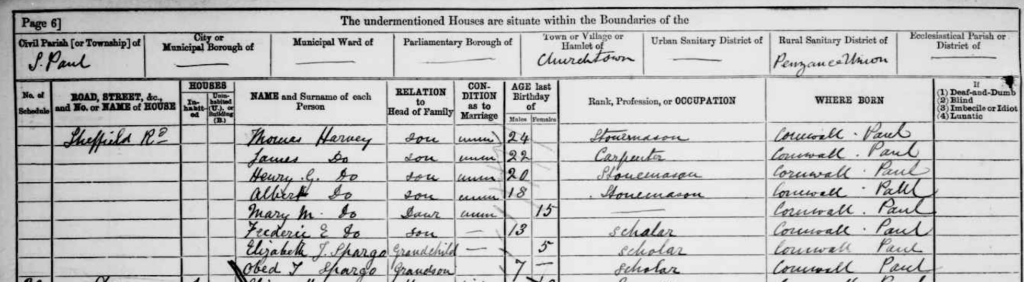 Page 6] The undermentioned Houses are situate within the Boundaries of the
Civil Parish [or Township] of City or Municipal Borough of Municipal Ward of Parliamentary Borough of Town or Village or Hamlet of Urban Sanitary District of Rural Sanitary District of Ecclesiastical Parish or District of
S. Paul Churchtown Penzance Union
No. of Schedule ROAD, STREET, &c., and No. or NAME of HOUSE HOUSES Inhabited Uninhabited (U.), or Building (B.) NAME and Surname of each Person RELATION to Head of Family CONDITION as to Marriage AGE last Birthday of Males Females Rank, Profession, or OCCUPATION WHERE BORN If (1) Deaf-and-Dumb (2) Blind (3) Imbecile or Idiot (4) Lunatic
Sheffield Rd Thomas Harvey son unm 24 Stonemason Cornwall. Paul
James Do son unm 22 Carpenter Cornwall. Paul
Henry G. Do son unm 20 Stonemason Cornwall. Paul
Albert Do son unm 18 Stonemason Cornwall. Paul
Mary M. Do Daur unm 15 — Cornwall. Paul
Frederic E Do son — 13 scholar Cornwall. Paul
Elizabeth J. Spargo Grandchild — 5 scholar Cornwall Paul
Obed T Spargo Grandson 7 — scholar Cornwall Paul